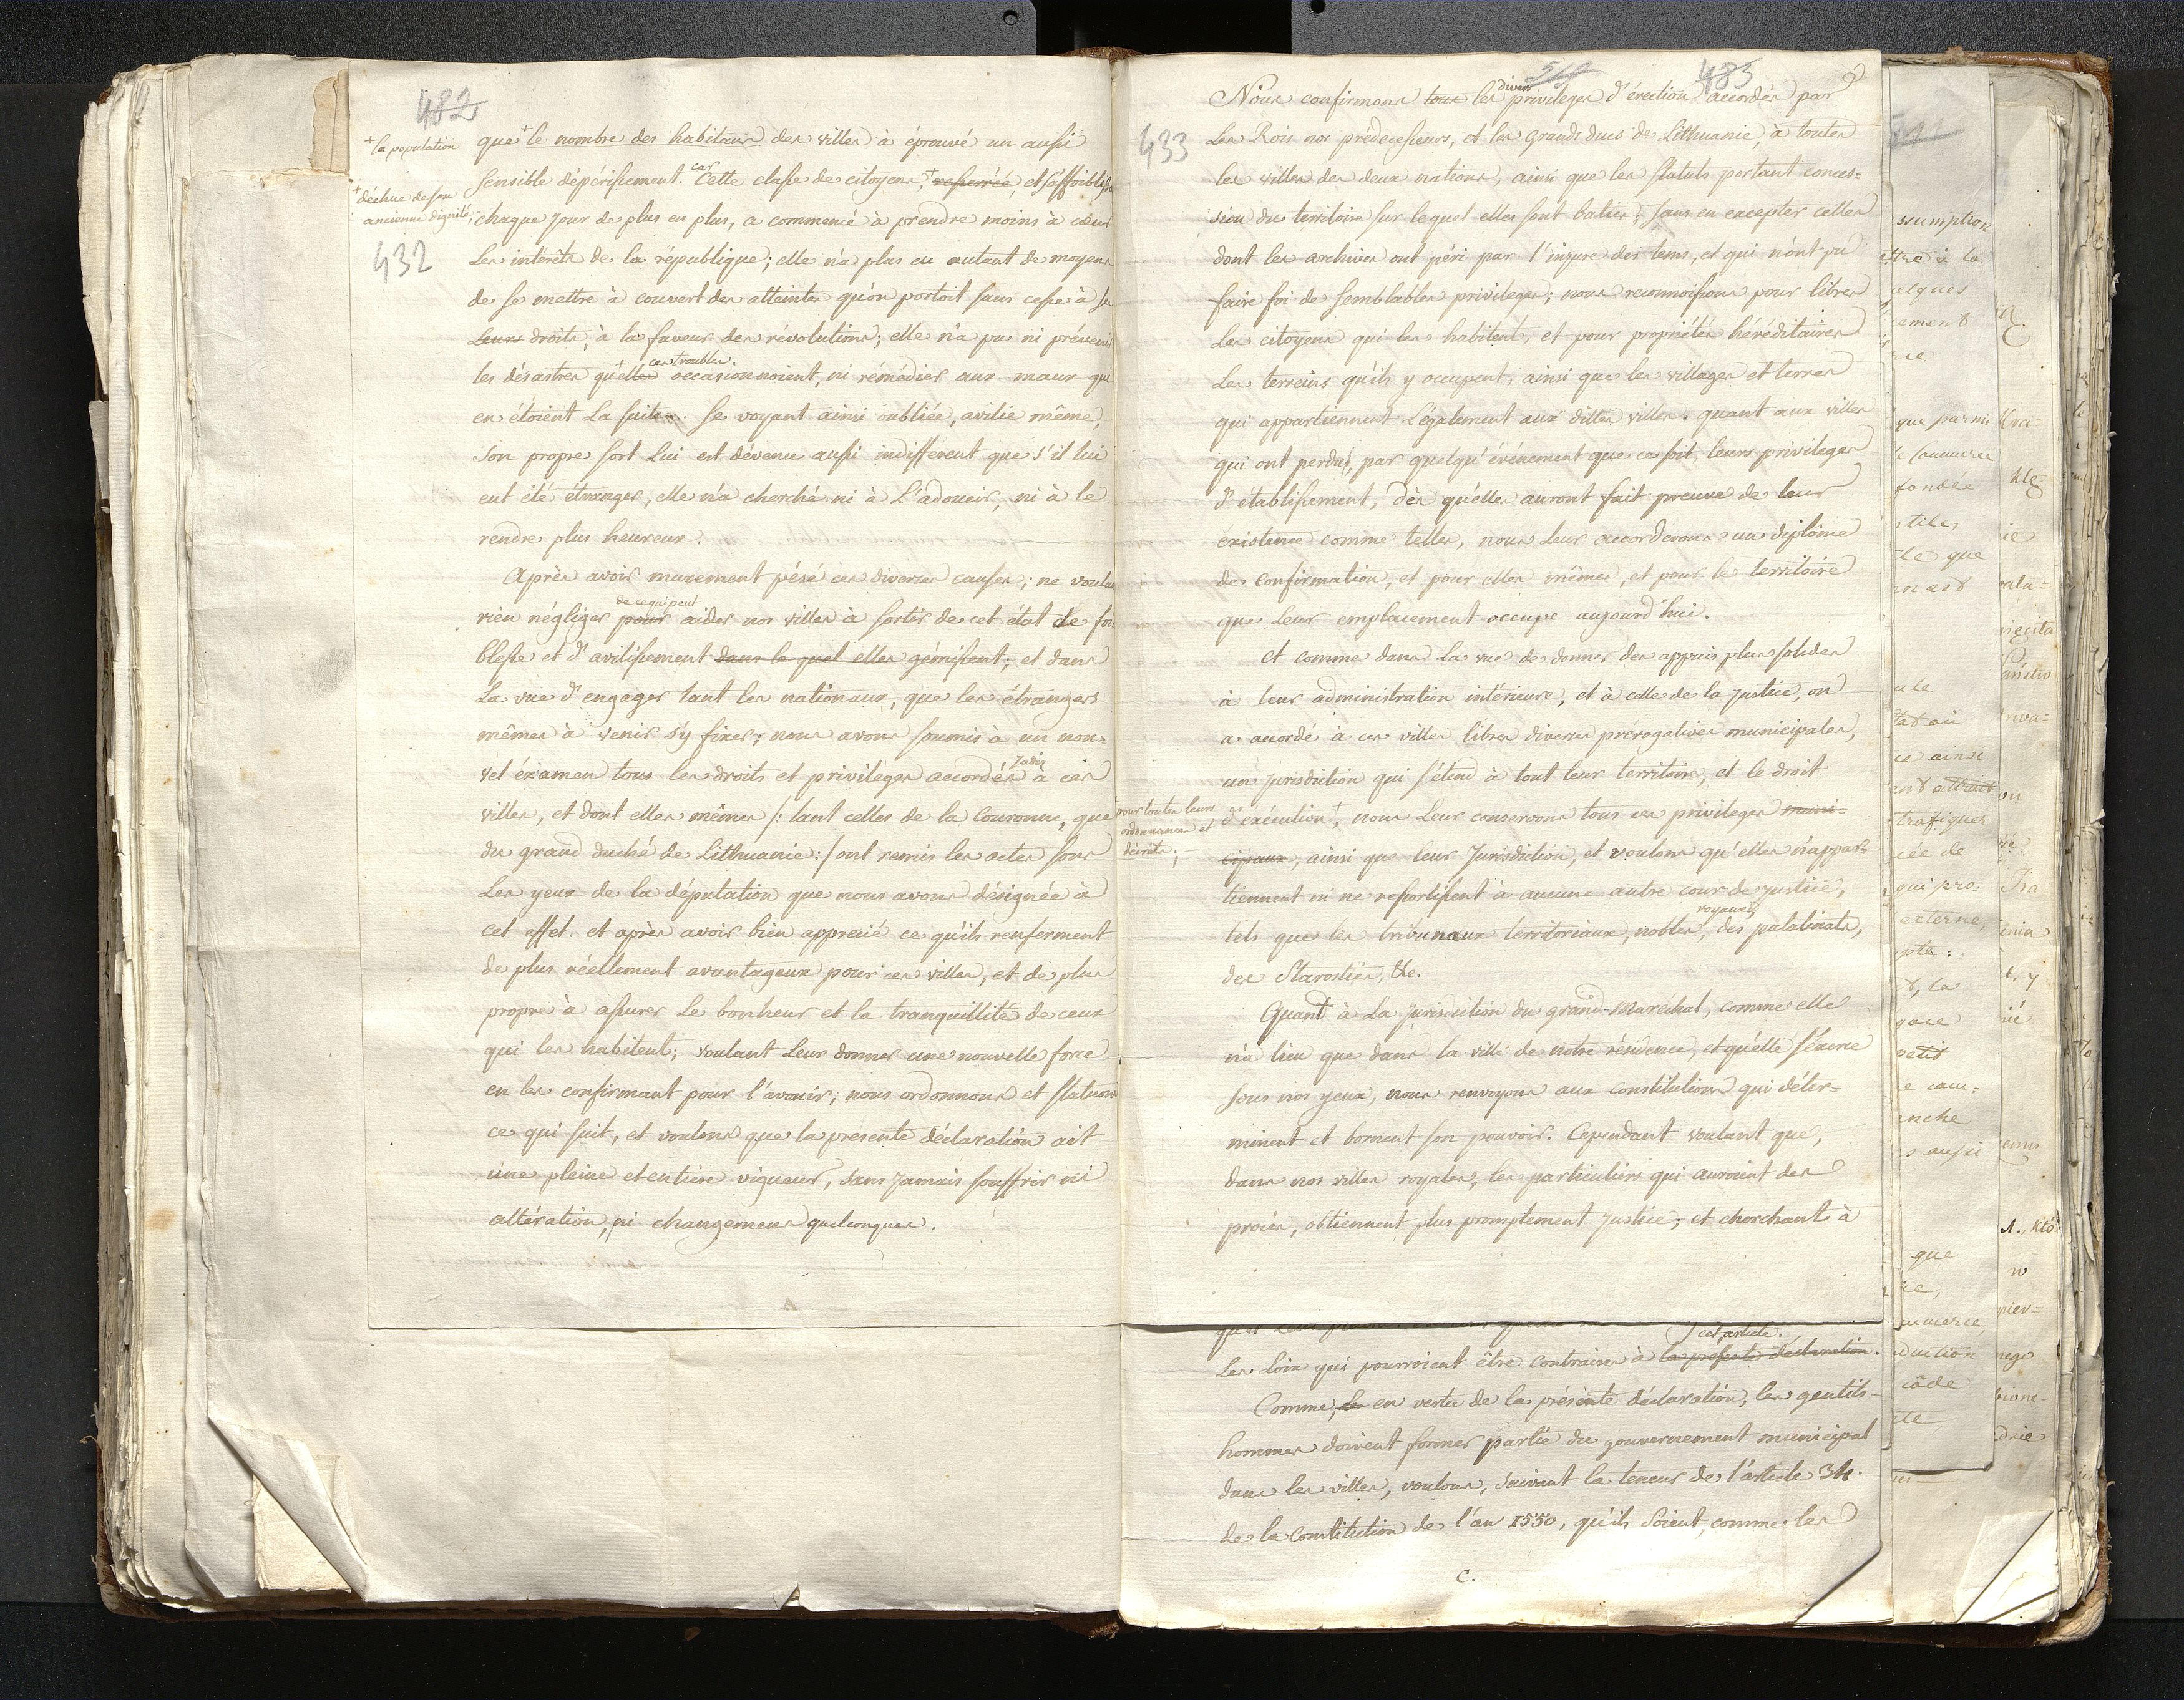 482
+ la population
+ déchue de son
ancienne dignité,
432
que + le nombre des habitans des villes à éprouvé un aussi
sensible dépérissement. car Cette classe de citoyens, + resserrée, et s'affoiblissant
chaque jour de plus en plus, a commencé à prendre moins à cœur
Les intérêts de la république; elle n'a plus eu autant de moyens
de se mettre à couvert des atteintes qu'on portoit sans cesse à
Leurs droits, à la faveur des révolutions; elle n'a pu ni prévenir
ces troubles
les désastres qu'elles occasionnoient, ni rémédier aux maux qui
en étoient La suite. Se voyant ainsi oubliée, avilie même,
Son propre sort Lui est dévenu aussi indifférent que s'il lui
eut été étranger, elle n'a cherché ni à L'adoucir, ni à le
rendre plus heureux.
Après avoir murement pésé ces diverses causes; ne voulant
de ce qui peut
rien négliger pour aider nos villes à sortir de cet état de foi
blesse et d'avilissement dans le quel elles gémissent; et dans
La vue d'engager tant les nationaux, que les étrangers
mêmes à venir s'y fixer; nous avons soumis à un nou=
jadis
vel éxamen tous les droits et privilèges accordés à ces
villes, et dont elles mêmes /: tant celles de la Couronne, que
du grand duché de Lithuanie :/ ont remis les actes sous
Les yeux de la députation que nous avons désignée à
cet effet. et après avoir bien apprecié ce qu'ils renferment
de plus réellement avantageux pour ces villes, et de plus
propre à assurer Le bonheur et la tranquillité de ceux
qui les habitent; voulant Leur donner une nouvelle force
en les confirmant pour l'avenir; nous ordonnons et statuons
ce qui suit, et voulons que la presente déclaration ait
une pleine et entière vigueur, sans jamais souffrir ni
altération, ni changemens quelconques.
510
483
433
divers
Nous confirmons tous les privileges d'érection accordés par
Les Rois nos prédecesseurs, et les grands ducs de Lithuanie, à toutes
les villes des deux nations, ainsi que les statuts portant conces=
sion du territoire sur lequel elles sont baties; sans en excepter celles
dont les archives ont péri par l'injure des tems, et qui n'ont pu
faire foi de semblables privileges; nous reconnoissons pour libres
Les citoyens qui les habitent, et pour propriétés héréditaires
Les terreins qu'ils y occupent, ainsi que les villages et terres
qui appartiennent Légalement aux dittes villes. quant aux villes
qui ont perdus, par quelqu'événement que ce soit, leurs privileges
d'établissement, dès qu'elles auront fait preuve de leur
existence comme telles, nous Leur accorderons un diplôme
de confirmation, et pour elles mêmes, et pour le territoire
que Leur emplacement occupe aujourd'hui.
et comme dans La vue de donner des appuis plus solides
à leur administration intérieure, et à celle de la justice, on
a accordé à ces villes libres diverses prérogatives municipales,
un jurisdiction qui s'étend à tout leur territoire, et le droit
pour toutes leurs
ordonnances et
décrets;
d'exécution +, nous Leur conservons tous ces privileges muni=
cipaux, ainsi que leur Jurisdiction, et voulons qu'elles n'appar=
tiennent ni ne ressortissent à aucune autre cour de justice,
royaux,
tels que les tribunaux territoriaux, nobles, des palatinats,
des Starosties, &c.
Quant à La jurisdiction du grand-Maréchal, comme elle
n'a lieu que dans la ville de notre résidence, et qu'elle s'éxerce
sous nos yeux, nous renvoyons aux constitutions qui déter=
minent et bornent son pouvoir. Cependant voulant que,
dans nos villes royales, les particuliers qui auroient des
procès, obtiennent plus promptement justice, et cherchant à
cet article.
Les Loix qui pourroient être contraires à la presente déclaration.
Comme, les en vertu de la présente déclaration, les gentils-
hommes doivent former partie du gouvernement municipal
dans les villes, voulons, suivant la teneur de l'article 34.
de la constitution de l'an 1550, qu'ils soient, comme les
c.